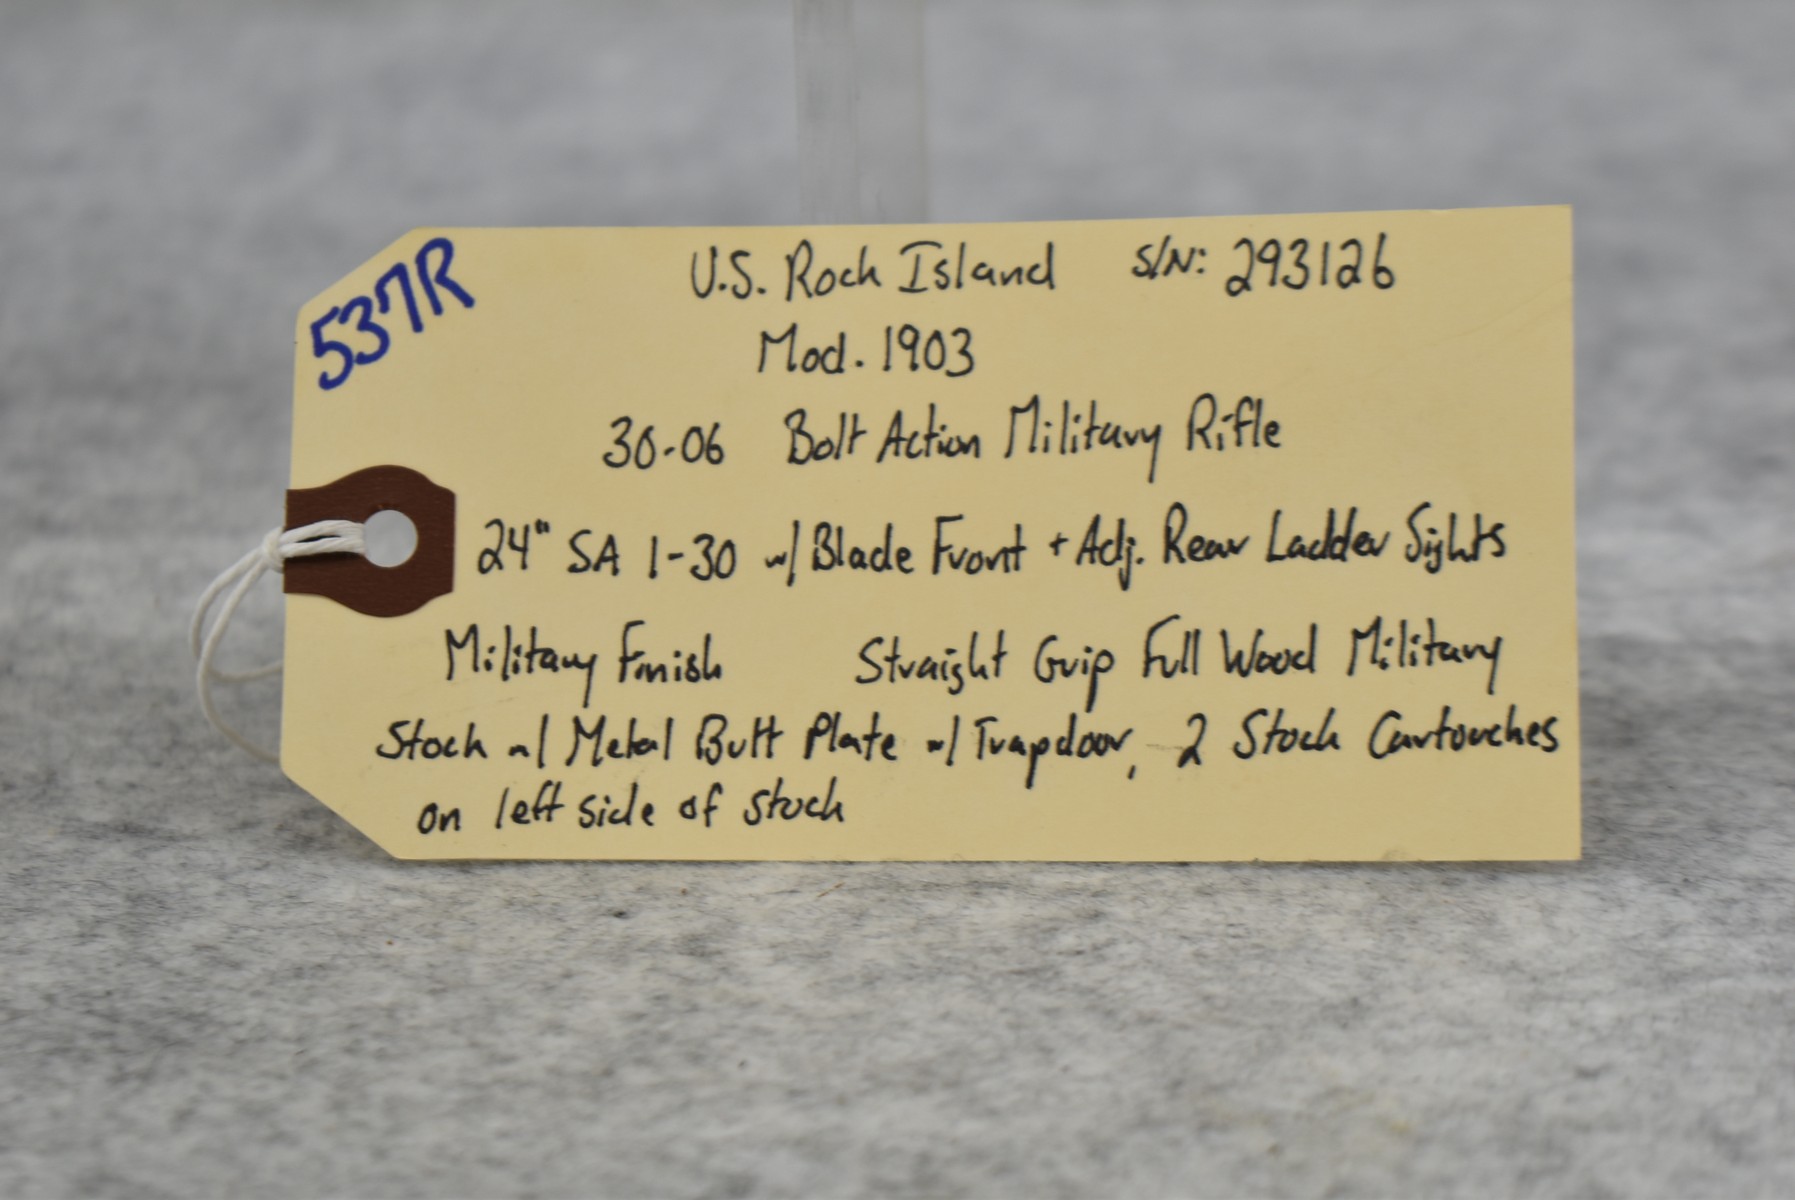 537R
U.S. Rock Island S/N: 293126
Mod. 1903
30-06 Bolt Action Military Rifle
24" SA 1-30 w/ Blade Front + Adj. Rear Ladder Sights
Military Finish Straight Grip Full Wood Military
Stock w/ Metal Butt Plate w/ Trapdoor, 2 Stock Cartouches
on left side of stock